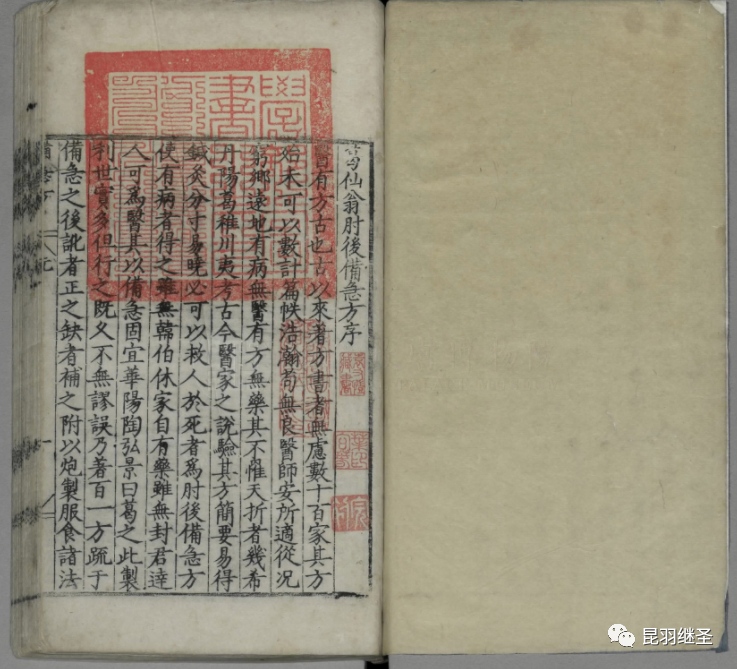 葛仙翁肘後備急方序
醫有方古也古以來著方書者無慮數十百家其方
殆未可以數計篇帙浩瀚苟無良醫師安所適從況
窮鄉遠地有病無醫有方無藥其不惟夭折者幾希
丹陽葛稚川夷考古今醫家之說驗其方簡要易得
鍼灸分寸易曉必可以救人於死者為肘後備急方
使有病者得之雖無韓伯休家自有藥雖無封君達
人可為醫其以備急固宜華陽陶弘景曰葛之此製
利世實多但行之既久不無謬誤乃著百一方疏于
備急之後訛者正之缺者補之附以炮製服食諸法
昆羽继圣